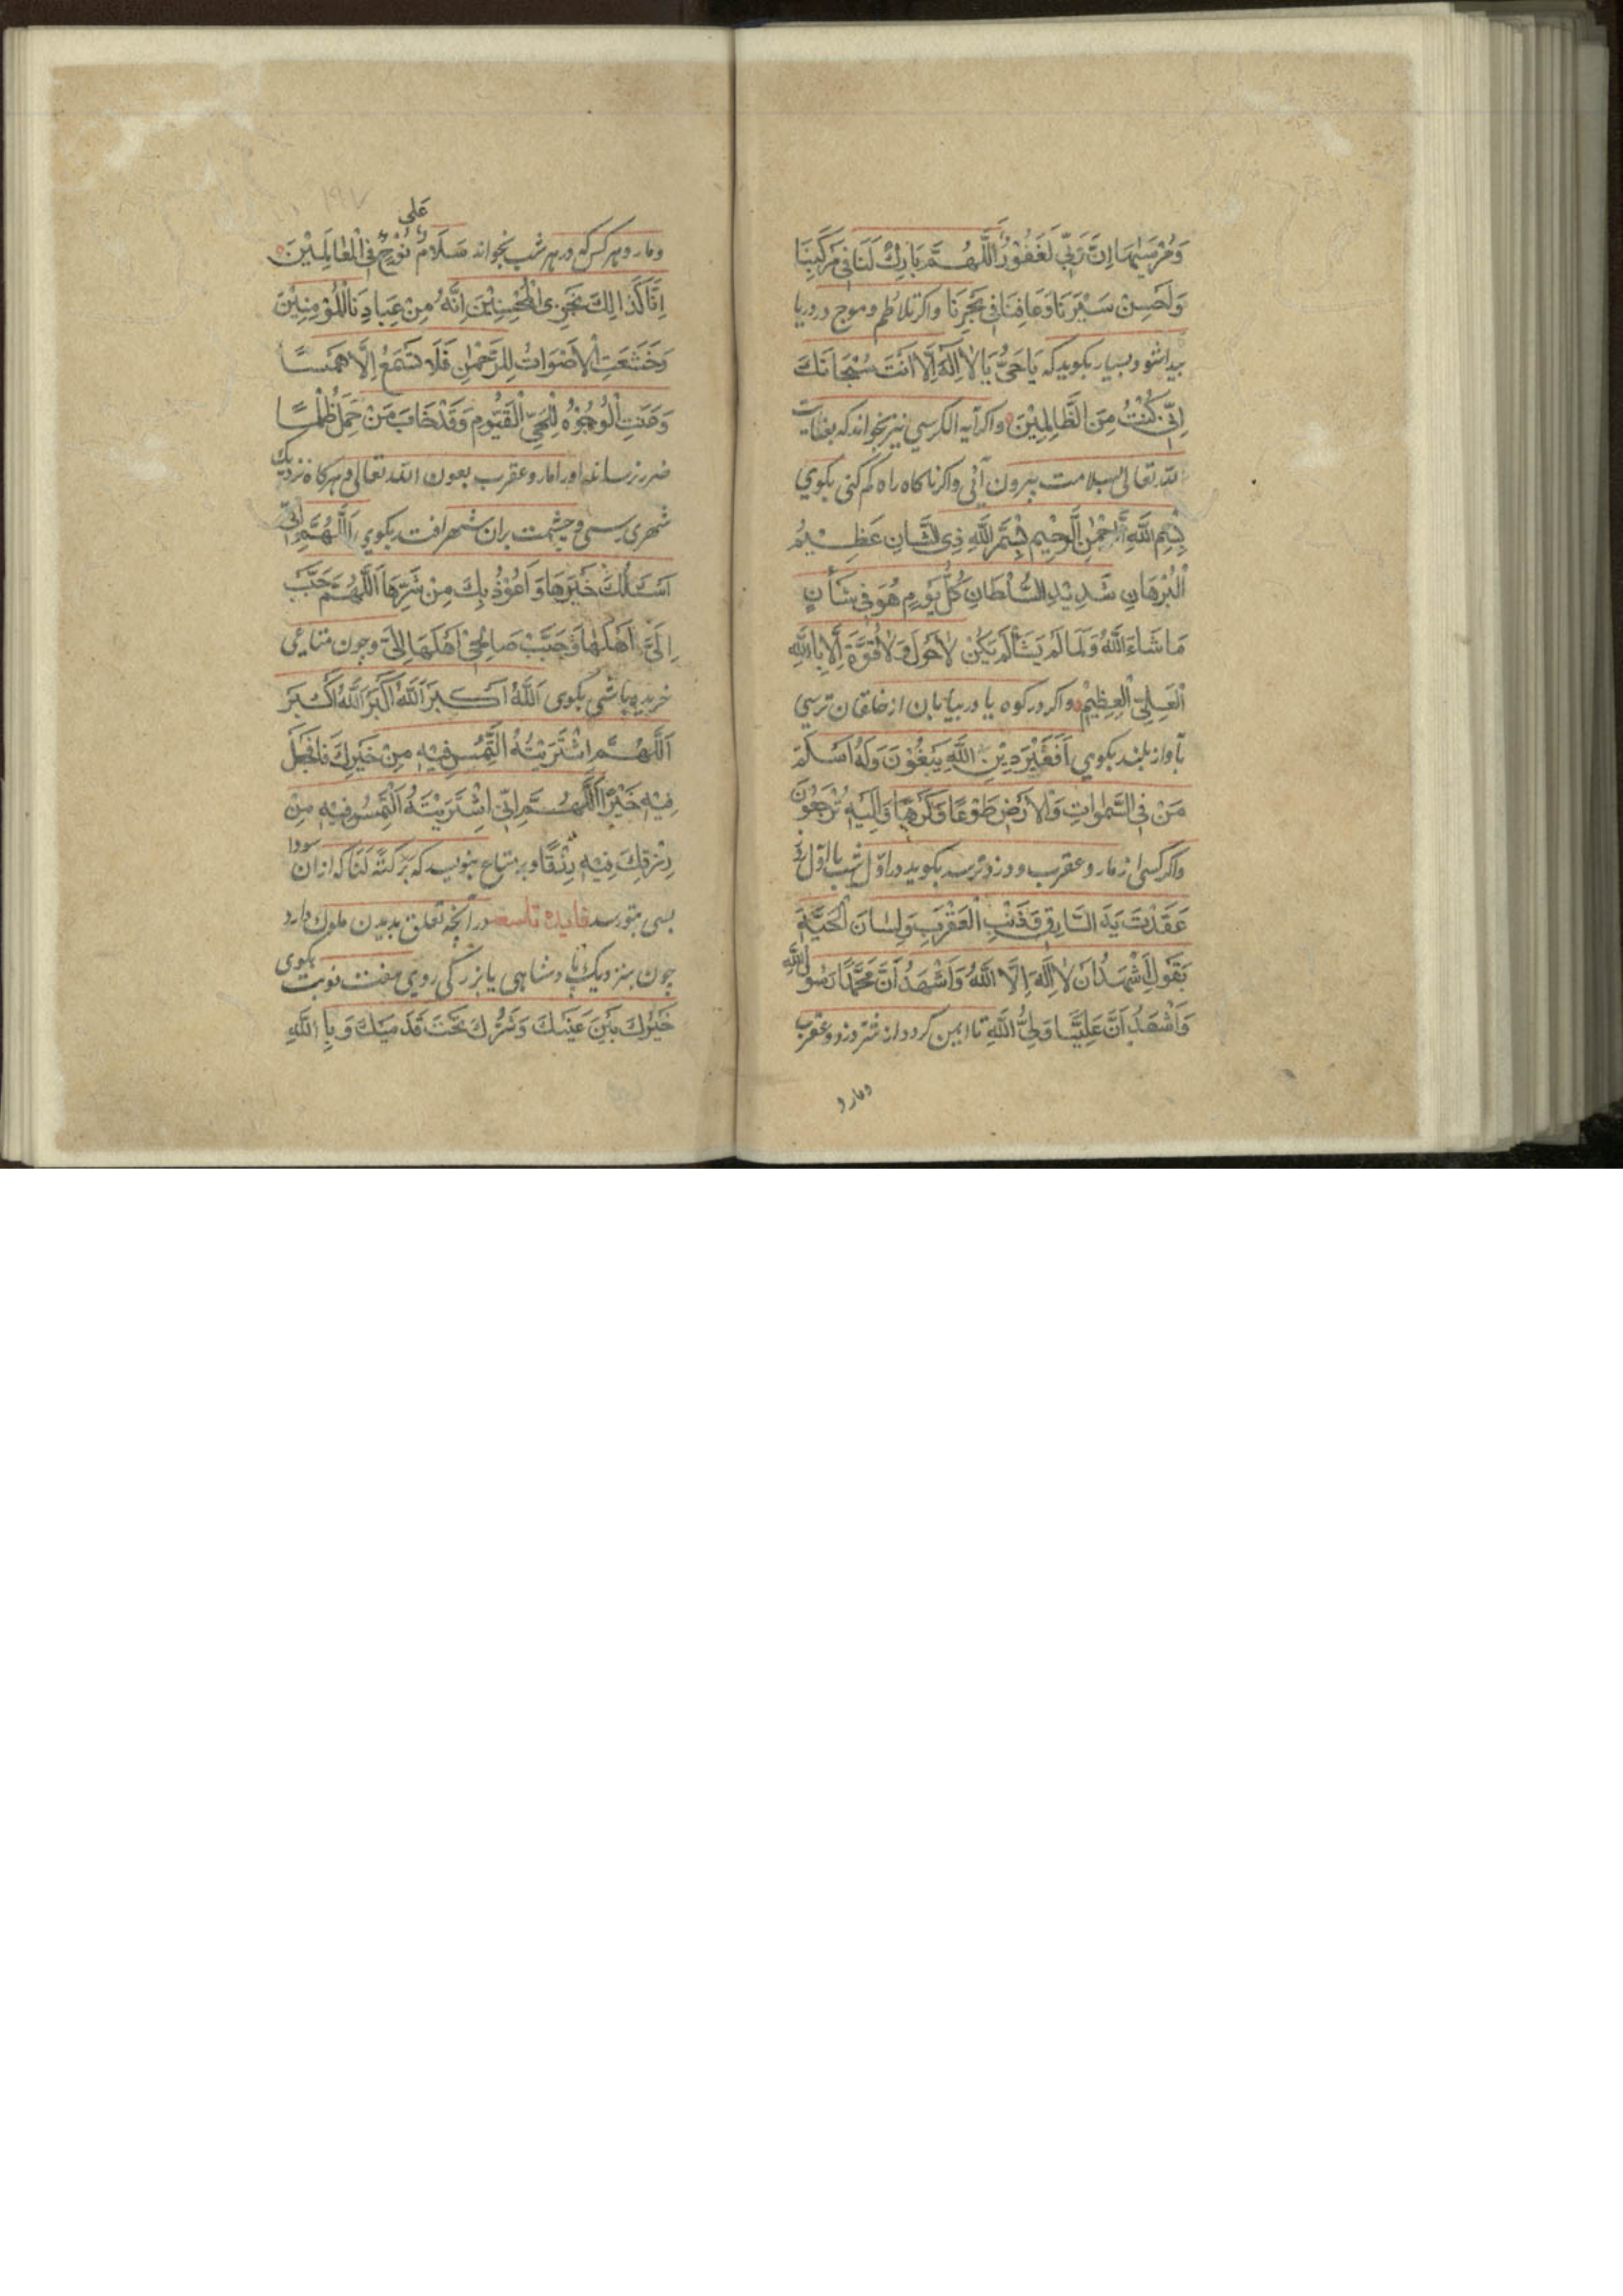 وَمُرْسٰیهَا اِنَّ رَبِّی لَغَفُوْرٌ اَللّٰهُمَّ بَارِكْ لَنَا فِی مَرْكَبِنَا
وَلَحَسِنْ سَیْرَنَا وَعَافِنَا فِی بَحْرِنَا واکر تلاطم و موج در دریا
بیدا شود بسیار بکوید که یَا حَیُّ یَا لَا اِلٰهَ اِلَّا اَنْتَ سُبْحَانَكَ
اِنِّی كُنْتُ مِنَ الظَّالِمِیْنَ واکر آیه الکرسی نیز بخواند که بعنایت
الله تعالی بسلامت بیرون آئی واکر ناکاه راه کم کنی بکوی
بِسْمِ اللهِ الرَّحْمٰنِ الرَّحِیْمِ بِسْمِ اللهِ ذِی الشَّانِ عَظِیْمُ
الْبُرْهَانِ شَدِیْدِ السُّلْطَانِ كُلَّ یَوْمٍ هُوَ فِی شَأْنٍ
مَا شَاءَ اللهُ وَلَمَا لَمْ یَشَأْ لَمْ یَكُنْ لَا حَوْلَ وَلَا قُوَّةَ اِلَّا بِاللهِ
الْعَلِیِّ الْعَظِیْمِ واکر در کوه یا در بیابان از خلقان ترسی
بآواز بلند بکوی اَفَغَیْرَ دِیْنِ اللهِ یَبْغُوْنَ وَلَهُ اَسْلَمَ
مَنْ فِی السَّمٰوَاتِ وَالْاَرْضِ طَوْعًا وَكَرْهًا وَاِلَیْهِ تُرْجَعُوْنَ
واکر کسی از مار و عقرب و دزد ترسد بکوید در اوّل شب یا اوّل روز
عَقَدْتُ یَدَ السَّارِقِ وَذَنْبِ الْعَقْرَبِ وَلِسَانَ الْحَیَّةِ
بِقَوْلِ اَشْهَدُ اَنْ لَا اِلٰهَ اِلَّا اللهُ وَاَشْهَدُ اَنَّ مُحَمَّدًا رَسُوْلُ اللهِ
وَاَشْهَدُ اَنَّ عَلِیًّا وَلِیُّ اللهِ تا ایمن کردد از شر دزد و عقرب
ومار و
۱۹۷
عَلٰی
ومار و هر کس که در هر شب بخواند سَلَامٌ نُوْحٍ فِی الْعَالَمِیْنَ
اِنَّا كَذَالِكَ نَجْزِی الْمُحْسِنِیْنَ اِنَّهُ مِنْ عِبَادِنَا الْمُؤْمِنِیْنَ
وَخَشَعَتِ الْاَصْوَاتُ لِلرَّحْمٰنِ فَلَا تَسْمَعُ اِلَّا هَمْسًا
وَعَنَتِ الْوُجُوْهُ لِلْحَیِّ الْقَیُّومِ وَقَدْ خَابَ مَنْ حَمَلَ ظُلْمًا
ضرر نرساند اورا مار و عقرب بعون الله تعالی و هرکاه نزدیک
شهری رسی و چشمت بران شهر افتد بکوی اَللّٰهُمَّ اِنِّی
اَسْئَلُكَ خَیْرَهَا وَاَعُوْذُ بِكَ مِنْ شَرِّهَا اَللّٰهُمَّ حَبِّبْ
اِلَیَّ اَهْلَهَا وَحَبِّبْ صَالِحِی اَهْلَهَا اِلَیَّ وچون متاعی
خریده باشی بکوی اَللهُ اَكْبَرَ اَللهُ اَكْبَرَ اَللهُ اَكْبَرَ
اَللّٰهُمَّ اِشْتَرَیْتُهُ اَلْتَمِسُ فِیْهِ مِنْ خَیْرِكَ فَاجْعَلْ
فِیْهِ خَیْرًا اَللّٰهُمَّ اِنِّی اِشْتَرَیْتُهُ اَلْتَمِسُ فِیْهِ مِنْ
رِزْقِكَ فِیْهِ رِزْقًا و بر متاع بنویسد که بَرَكَةً لَنَا که از ان سودا
بسی بتو رسد فایده تاسعه در آنچه تعلق بدیدن ملوک دارد
چون بنزدیک پادشاهی یا بزرکی روی هفت نوبت بکوی
خَیْرُكَ بَیْنَ عَیْنَیْكَ وَشَرُّكَ تَحْتَ قَدَمَیْكَ وَبِاللهِ